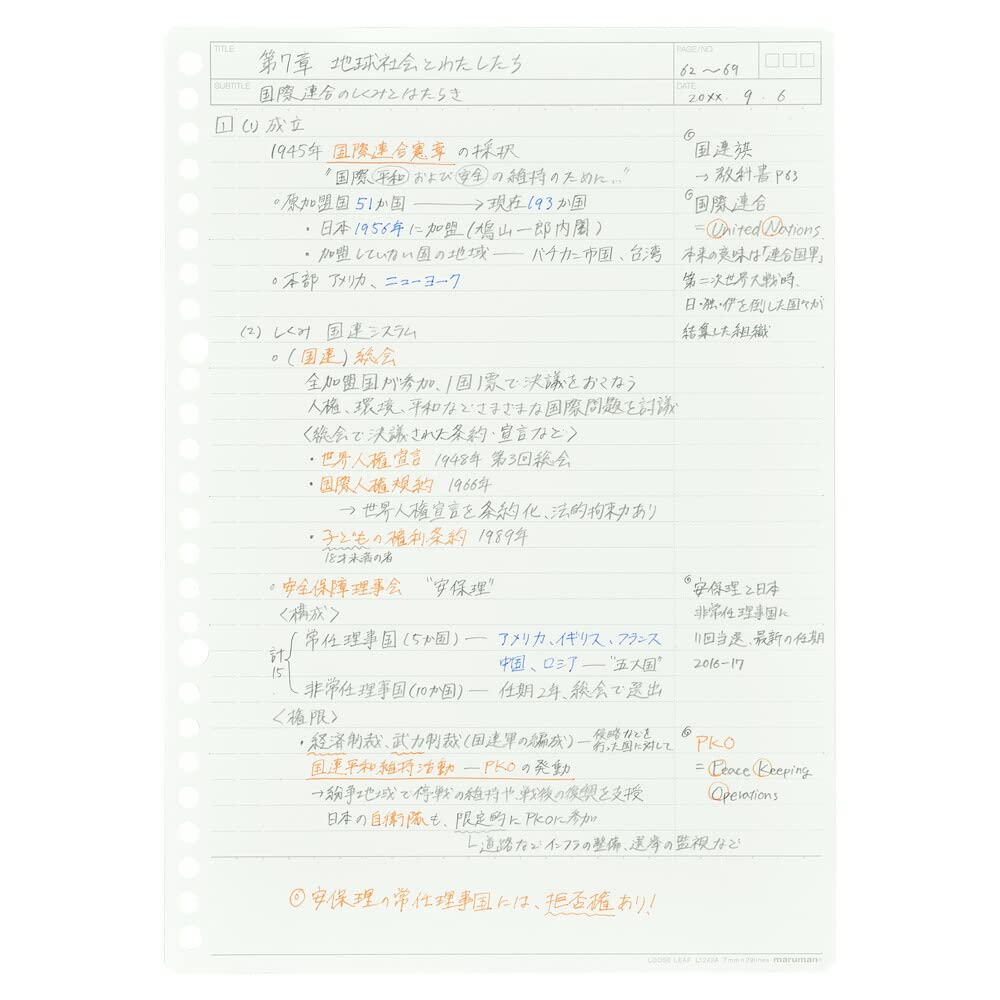 TITLE
第7章 地球社会とわたしたち
PAGE/NO.
62〜69
SUBTITLE
国際連合のしくみとはたらき
DATE
20XX. 9. 6
1 (1) 成立
1945年 国際連合憲章 の採択
"国際平和および安全の維持のために…"
○原加盟国 51か国 → 現在193か国
・日本1956年に加盟(鳩山一郎内閣)
・加盟していない国の地域 — バチカン市国、台湾
○本部 アメリカ、ニューヨーク
◎国連旗
→ 教科書P63
◎国際連合
= United Nations
本来の意味は「連合国軍」
第二次世界大戦時、
日・独・伊を倒した国々が
結集した組織
(2) しくみ 国連システム
○(国連)総会
全加盟国が参加、1国1票で決議をおこなう
人権、環境、平和などさまざまな国際問題を討議
〈総会で決議された条約・宣言など〉
・世界人権宣言 1948年 第3回総会
・国際人権規約 1966年
→ 世界人権宣言を条約化、法的拘束力あり
・子どもの権利条約 1989年
18才未満の者
○安全保障理事会 "安保理"
〈構成〉
計15
常任理事国(5か国) — アメリカ、イギリス、フランス
中国、ロシア — "五大国"
非常任理事国(10か国) — 任期2年、総会で選出
◎安保理と日本
非常任理事国に
11回当選、最新の任期
2016-17
〈権限〉
・経済制裁、武力制裁(国連軍の編成) — 侵略などを
行った国に対して
国連平和維持活動 — PKOの発動
→紛争地域で停戦の維持や、戦後の復興を支援
日本の自衛隊も、限定的にPKOに参加
└道路などインフラの整備、選挙の監視など
◎PKO
= Peace Keeping
Operations
◎安保理の常任理事国には、拒否権あり!
LOOSE LEAF L1243A 7mm×29lines maruman